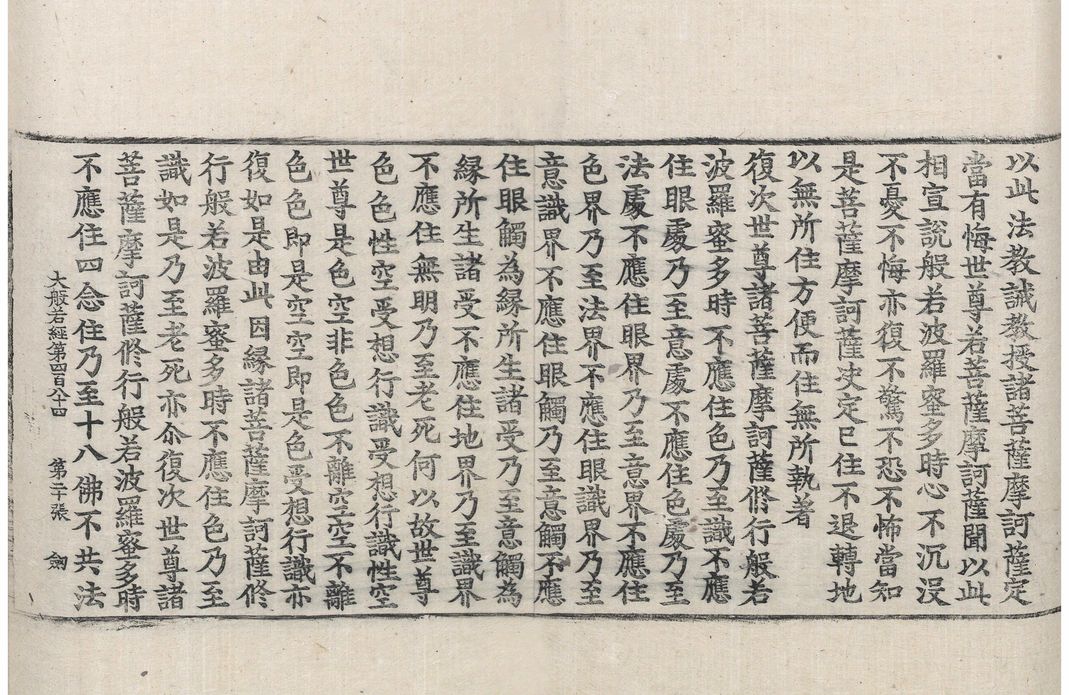 以此法教誡教授諸菩薩摩訶薩定
當有悔世尊若菩薩摩訶薩聞以此
相宣說般若波羅蜜多時心不沉沒
不憂不悔亦復不驚不恐不怖當知
是菩薩摩訶薩決定已住不退轉地
以無所住方便而住無所執著
復次世尊諸菩薩摩訶薩修行般若
波羅蜜多時不應住色乃至識不應
住眼處乃至意處不應住色處乃至
法處不應住眼界乃至意界不應住
色界乃至法界不應住眼識界乃至
意識界不應住眼觸乃至意觸不應
住眼觸為緣所生諸受乃至意觸為
緣所生諸受不應住地界乃至識界
不應住無明乃至老死何以故世尊
色色性空受想行識受想行識性空
世尊是色空非色色不離空空不離
色色即是空空即是色受想行識亦
復如是由此因緣諸菩薩摩訶薩修
行般若波羅蜜多時不應住色乃至
識如是乃至老死亦尒復次世尊諸
菩薩摩訶薩修行般若波羅蜜多時
不應住四念住乃至十八佛不共法
大般若經第四百八十四 第二十張 劒